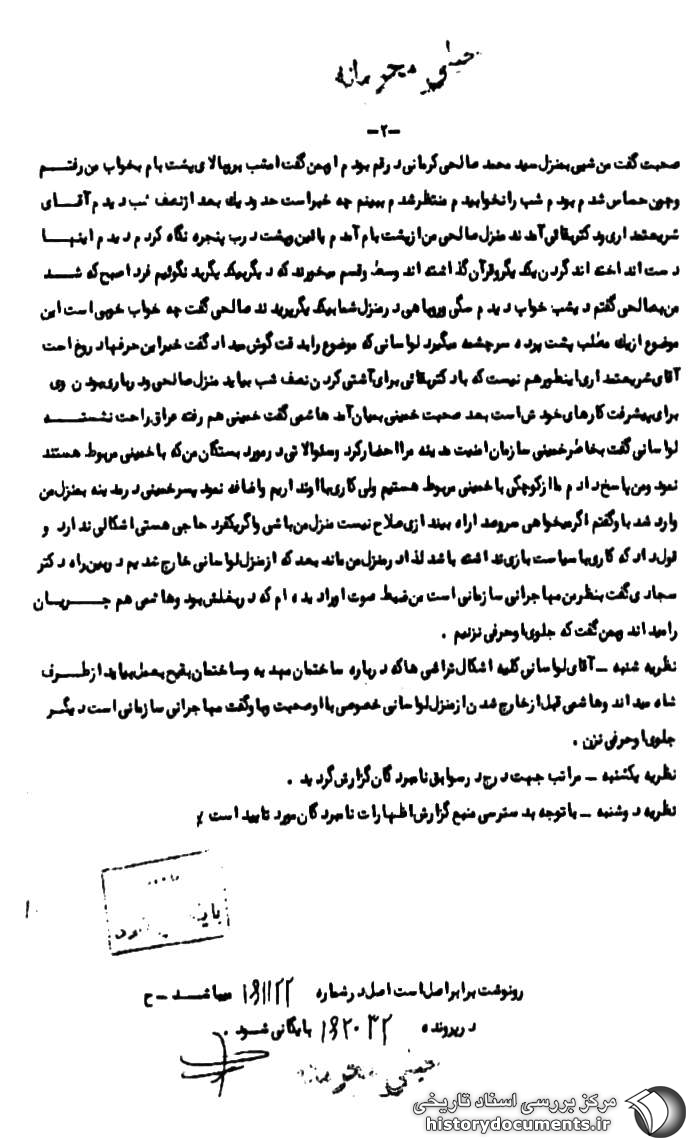 خیلی محرمانه
-۲-
صحبت گفت من شبی بمنزل سید محمد صالحی کرمانی در قم بودم او بمن گفت امشب برو بالای پشت بام بخواب من رفتم
و چون حساس شدم بودم شب را نخوابیدم منتظر شدم ببینم چه خبر است حدود یک بعد از نصف شب دیدم آقای
شریعتمداری و دکتر بقائی آمدند منزل صالحی من از پشت بام آمدم پائین و پشت درب پنجره نگاه کردم دیدم اینها
دست انداخته اند گردن یکدیگر و قرآن گذاشته اند وسط و قسم میخورند که دیگر بیکدیگر بد نگوئیم فردا صبح که شد
من بصالحی گفتم دیشب خواب دیدم سگی و روباهی در منزل شما بیکدیگر پریدند صالحی گفت چه خواب خوبی است این
موضوع از یک مطلب پشت پرده سرچشمه میگیرد لواسانی که موضوع را بدقت گوش میداد گفت خیر این حرفها دروغ است
آقای شریعتمداری اینطور هم نیست که با دکتر بقائی برای آشتی کردن نصف شب بیاید منزل صالحی و درباری بودن وی
برای پیشرفت کارهای خودش است بعد صحبت خمینی بمیان آمد هاشمی گفت خمینی هم رفته عراق راحت نشسته
لواسانی گفت بخاطر خمینی سازمان امنیت مدینه مرا احضار کرد و سئوالاتی در مورد بستگان من که با خمینی مربوط هستند
نمود و من پاسخ دادم ما از کوچکی با خمینی مربوط هستیم ولی کاری با او نداریم و اضافه نمود پسر خمینی در مدینه بمنزل من
وارد شد باو گفتم اگر میخواهی سر و صدا راه بیندازی صلاح نیست منزل من باشی و اگر یکفرد حاجی هستی اشکالی ندارد و
قول داد که کاری با سیاست بازی نداشته باشد لذا در منزل من ماند بعد که از منزل لواسانی خارج شدیم در بین راه دکتر
سجادی گفت بنظر من مهاجرانی سازمانی است من ضبط صوت او را دیده ام که در بغلش بود و هاشمی هم جریان
را میداند و بمن گفت که جلوی او حرفی نزنیم .
نظریه شنبه - آقای لواسانی کلیه اشکال تراشی ها که درباره ساختمان مدینه و ساختمان بقیع بعمل میاید از طرف
شاه میداند و هاشمی قبل از خارج شدن از منزل لواسانی خصوصی با او صحبت و باو گفت مهاجرانی سازمانی است دیگر
جلوی او حرفی نزن .
نظریه یکشنبه - مراتب جهت درج در سوابق نامبردگان گزارش گردید .
نظریه دوشنبه - با توجه بدسترسی منبع گزارش اظهارات نامبردگان مورد تایید است
رونوشت برابر اصل است اصل در شماره ۱۶۱۱۲۲ میباشد - ح
در پرونده ۱۶۲۰۳۲ بایگانی شود .
خیلی محرمانه
مرکز بررسی اسناد تاریخی
historydocuments.ir